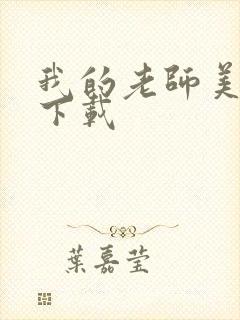 我的老師美
下載
葉嘉莹